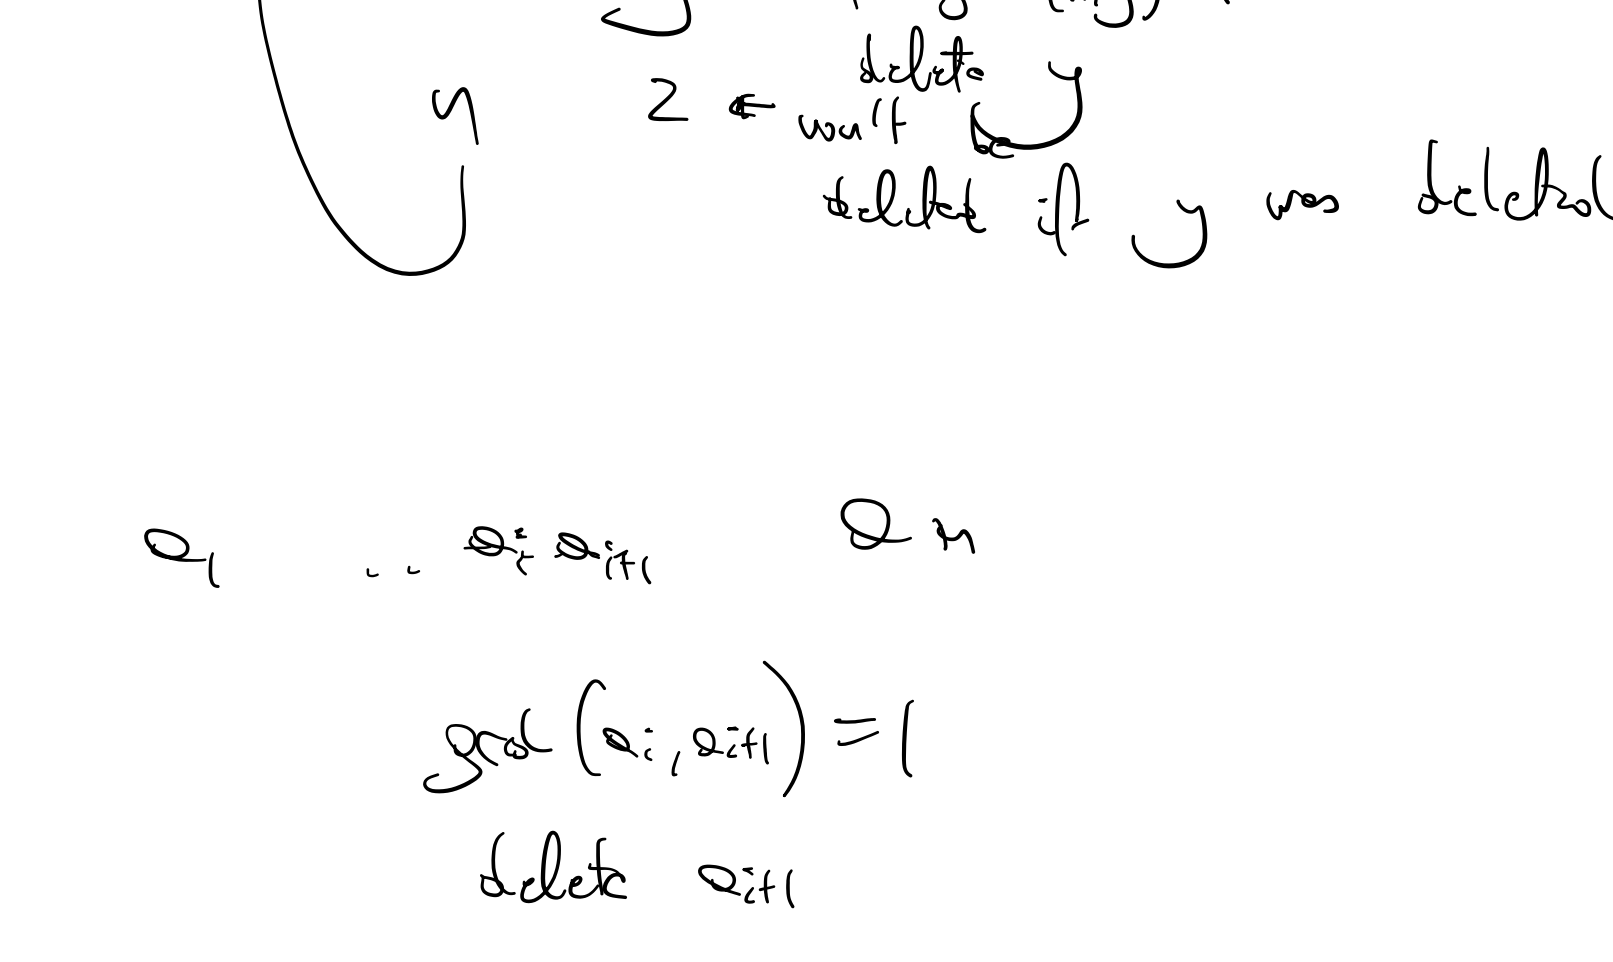 delete y
y z ← won't be
delete if y was deleted
a₁ .. aᵢ aᵢ₊₁ aₙ
gcd (aᵢ, aᵢ₊₁) = 1
delete aᵢ₊₁